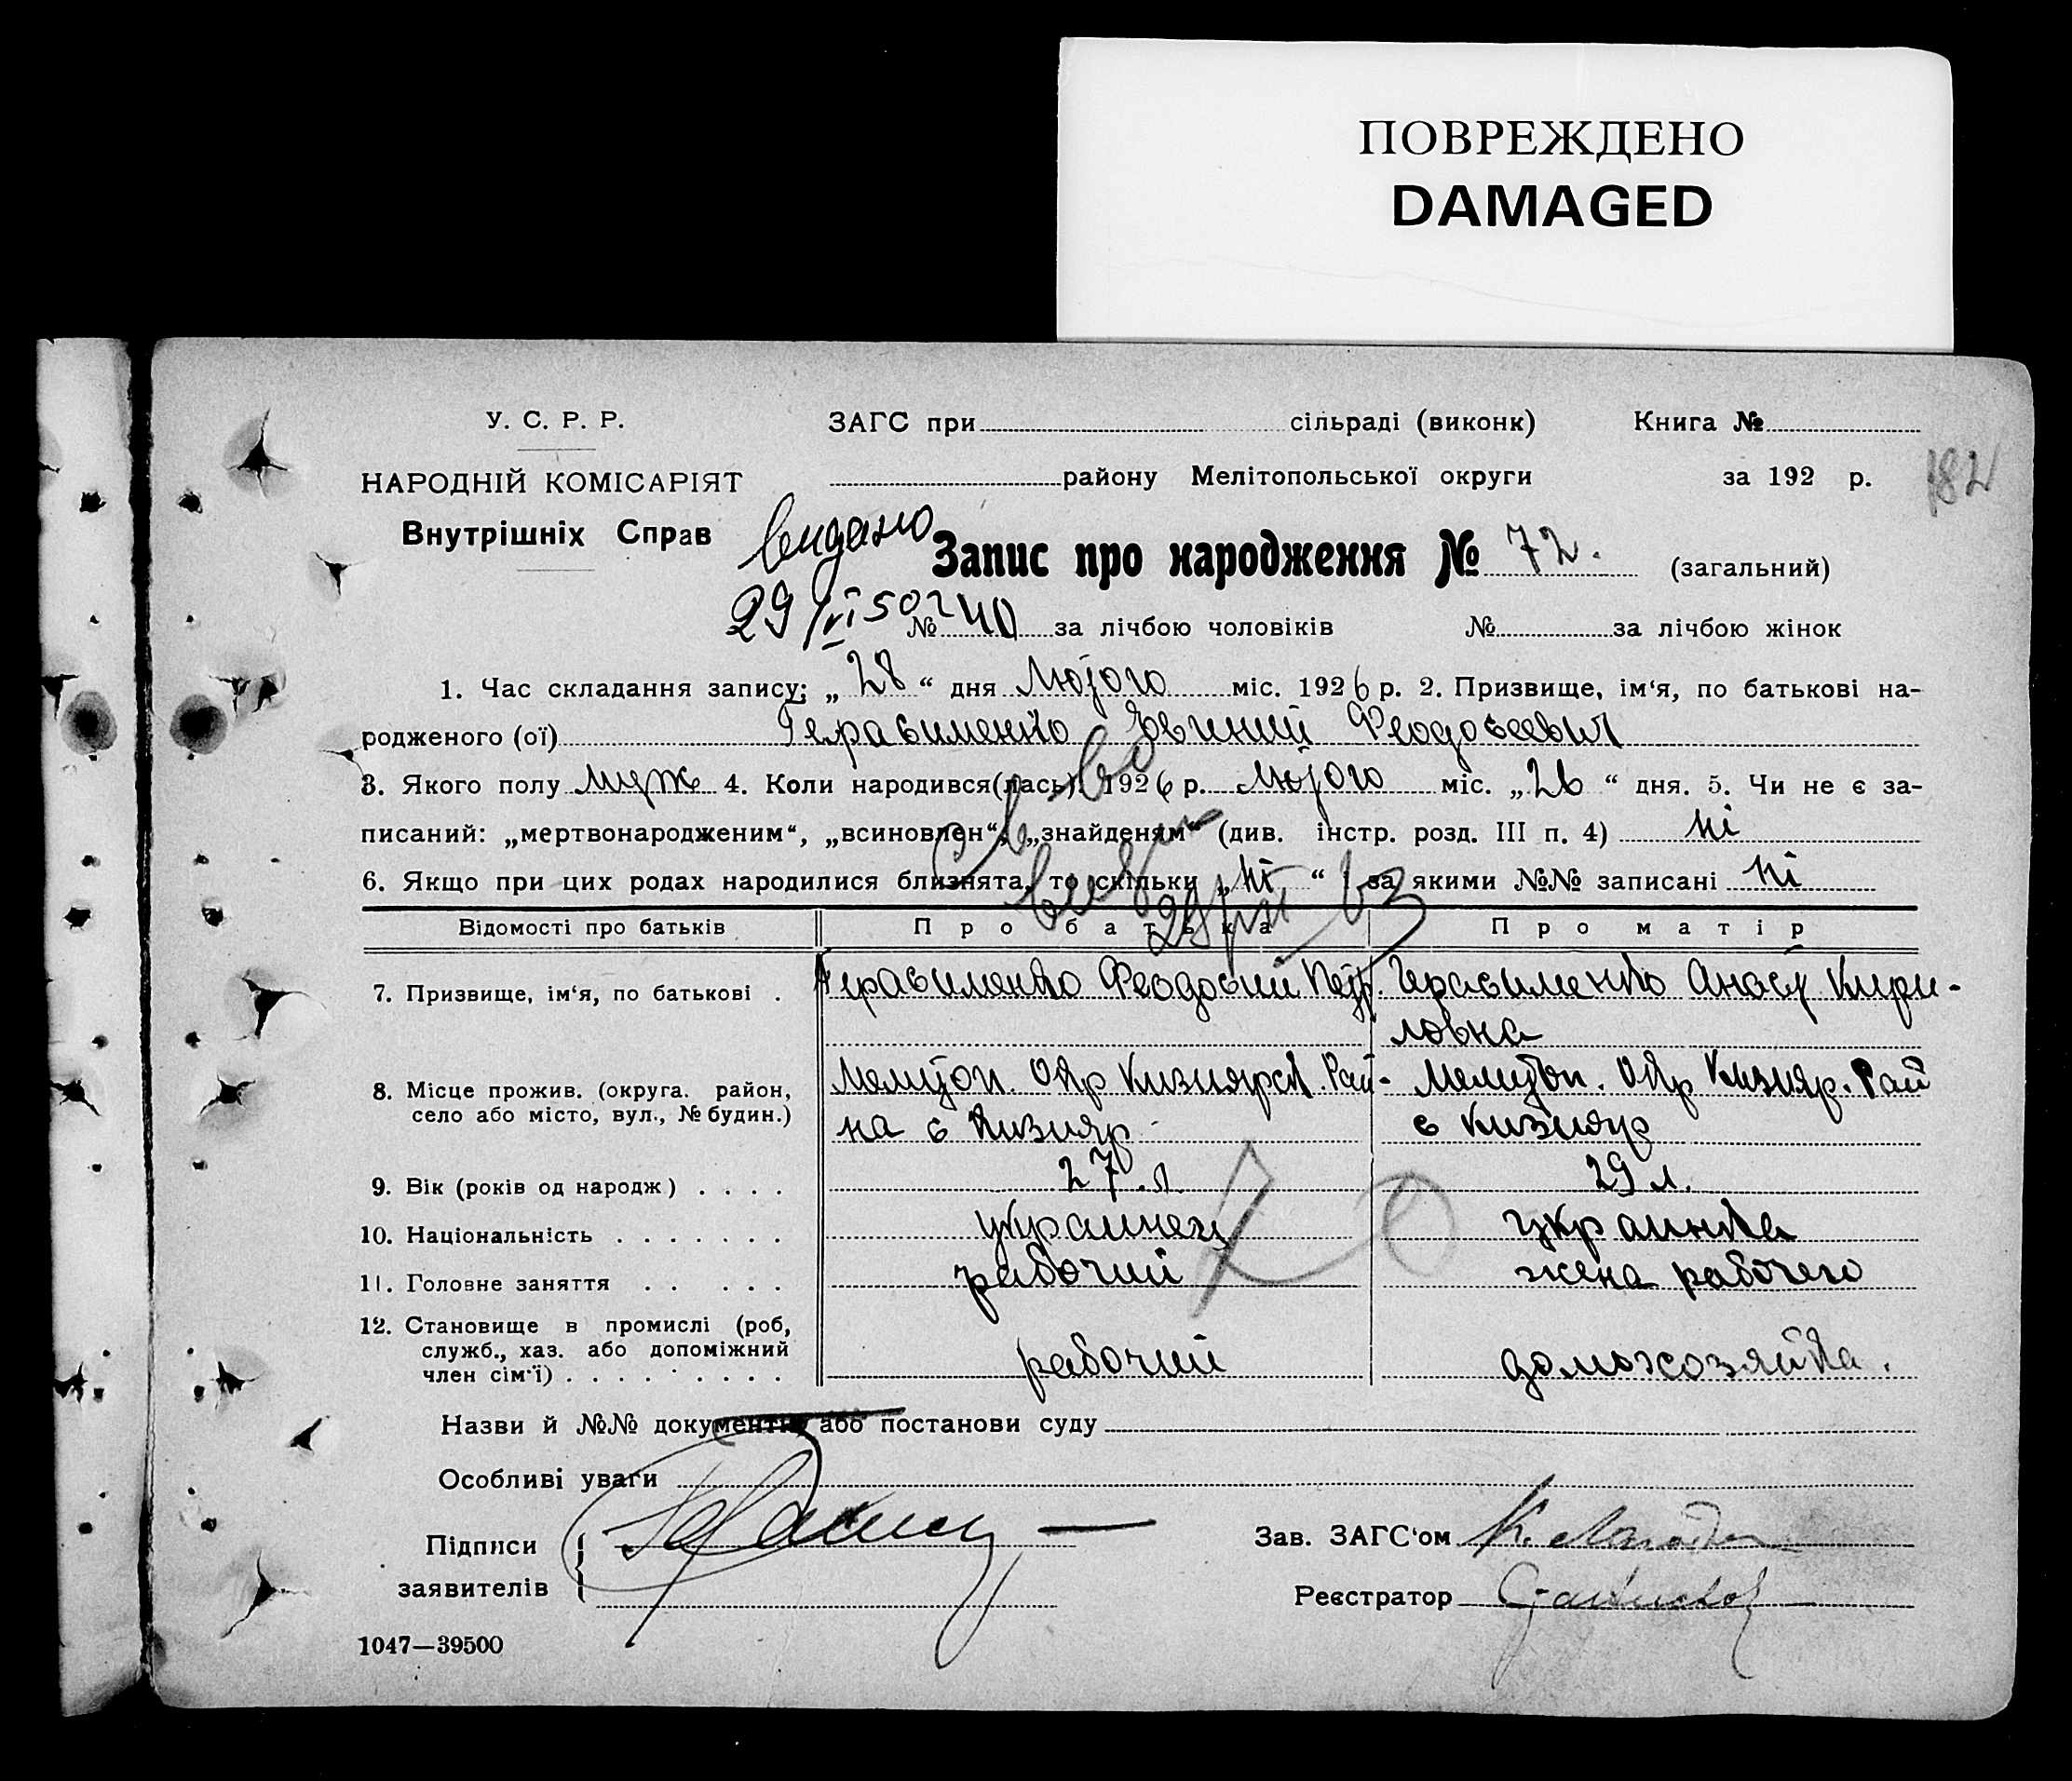 ПОВРЕЖДЕНО
DAMAGED
У. С. Р. Р.
ЗАГС при сільраді (виконк) Книга №
НАРОДНІЙ КОМІСАРІЯТ
району Мелітопольської округи за 192 р.
182
Внутрішніх Справ
видано
Запис про народження № 72. (загальний)
29/VI 50 г
№ 40 за лічбою чоловіків № за лічбою жінок
1. Час складання запису: „28“ дня Лютого міс. 1926 р. 2. Призвище, ім‘я, по батькові на-
родженого (ої) Герасименко Евгиний Феодосеевич
3. Якого полу муж 4. Коли народився(лась): 1926 р. лютого міс. „26“ дня. 5. Чи не є за-
писаний: „мертвонародженим“, „всиновлен“, „знайденям“ (див. інстр. розд. III п. 4) ні
6. Якщо при цих родах народилися близнята, то скільки „ні“ і за якими №№ записані ні
Св-во
Відомості про батьків Про батька Про матір
7. Призвище, ім‘я, по батькові . Герасименко Феодосий Петр. Герасименко Анаст. Кири-
ловна
8. Місце прожив. (округа. район, Мелитоп. Окр Кизиярск. Рай- Мелитоп. Окр Кизияр. Рай
село або місто, вул., № будин.) на с Кизияр с Кизияр
9. Вік (років од народж) . . . . 27 л 29 л.
10. Національність . . . . . . . украинец украинка
11. Головне заняття . . . . . рабочий жена рабочего
12. Становище в промислі (роб,
служб., хаз. або допоміжний
член сім‘ї) . . . . . . . . . рабочий домохозяйка.
Назви й №№ документів або постанови суду
Особливі уваги
Підписи
заявителів
Зав. ЗАГС‘ом
Реєстратор
1047—39500